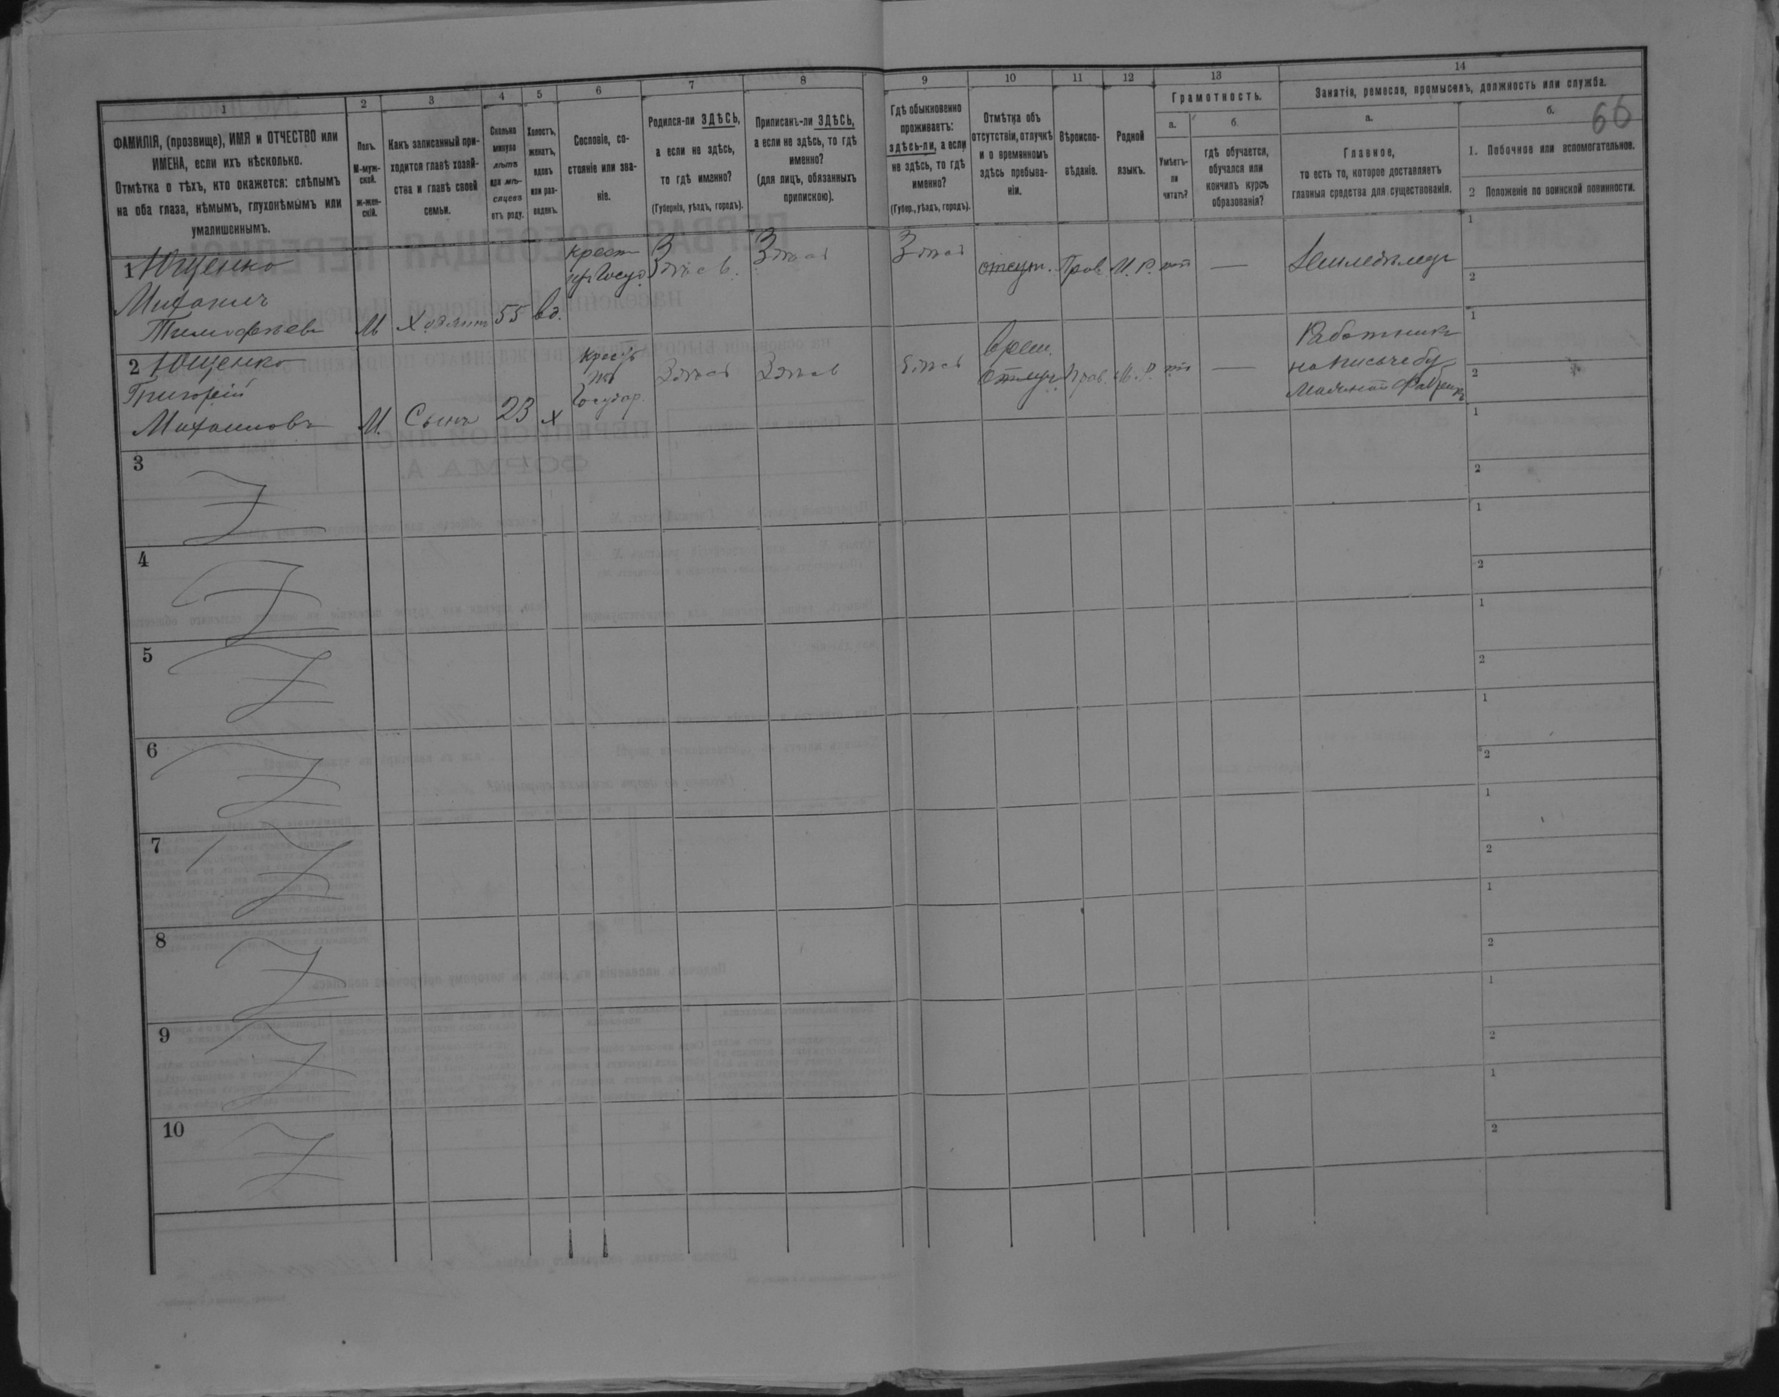 66
1
2
3
4
5
6
7
8
9
10
11
12
13
14
ФАМИЛІЯ, (прозвище), ИМЯ и ОТЧЕСТВО или
ИМЕНА, если ихъ нѣсколько.
Отмѣтка о тѣхъ, кто окажется: слѣпымъ
на оба глаза, нѣмымъ, глухонѣмымъ или
умалишеннымъ.
Полъ.
М-муж-
ской.
ж-жен-
скій.
Какъ записанный при-
ходится главѣ хозяй-
ства и главѣ своей
семьи.
Сколько
минуло
лѣтъ
или мѣ-
сяцевъ
отъ роду.
Холостъ,
женатъ,
вдовъ
или раз-
веденъ.
Сословіе, со-
стояніе или зва-
ніе.
Родился-ли ЗДѢСЬ,
а если не здѣсь,
то гдѣ именно?
(Губернія, уѣздъ, городъ).
Приписанъ-ли ЗДѢСЬ,
а если не здѣсь, то гдѣ
именно?
(для лицъ, обязанныхъ
припискою).
Гдѣ обыкновенно
проживаетъ:
здѣсь-ли, а если
не здѣсь, то гдѣ
именно?
(Губер., уѣздъ, городъ).
Отмѣтка объ
отсутствіи, отлучкѣ
и о временномъ
здѣсь пребыва-
ніи.
Вѣроиспо-
вѣданіе.
Родной
языкъ.
Грамотность.
а.
Умѣетъ-
ли
читать?
б.
гдѣ обучается,
обучался или
кончилъ курсъ
образованія?
Занятіе, ремесло, промыселъ, должность или служба.
а.
Главное,
то есть то, которое доставляетъ
главныя средства для существованія.
б.
1. Побочное или вспомогательное.
2 Положеніе по воинской повинности.
1 Ющенко
Михаилъ
Тимофѣевъ
М
Хозяинъ
55
вд.
Крест
Госуд.
Здѣсь
Здѣсь
Здѣсь
отсут.
Прав.
М. Р.
нѣт
—
Земледѣлец
1
2
2 Ющенко
Григорій
Михаиловъ
М.
Сынъ
23
х
Крест
Государ.
Здѣсь
Здѣсь
Здѣсь
Врем.
Отлуч.
Прав.
М. Р.
нѣт
—
Работникъ
на писчебу
мажной фабрикѣ
1
2
3
1
2
4
1
2
5
1
2
6
1
2
7
1
2
8
1
2
9
1
2
10
1
2